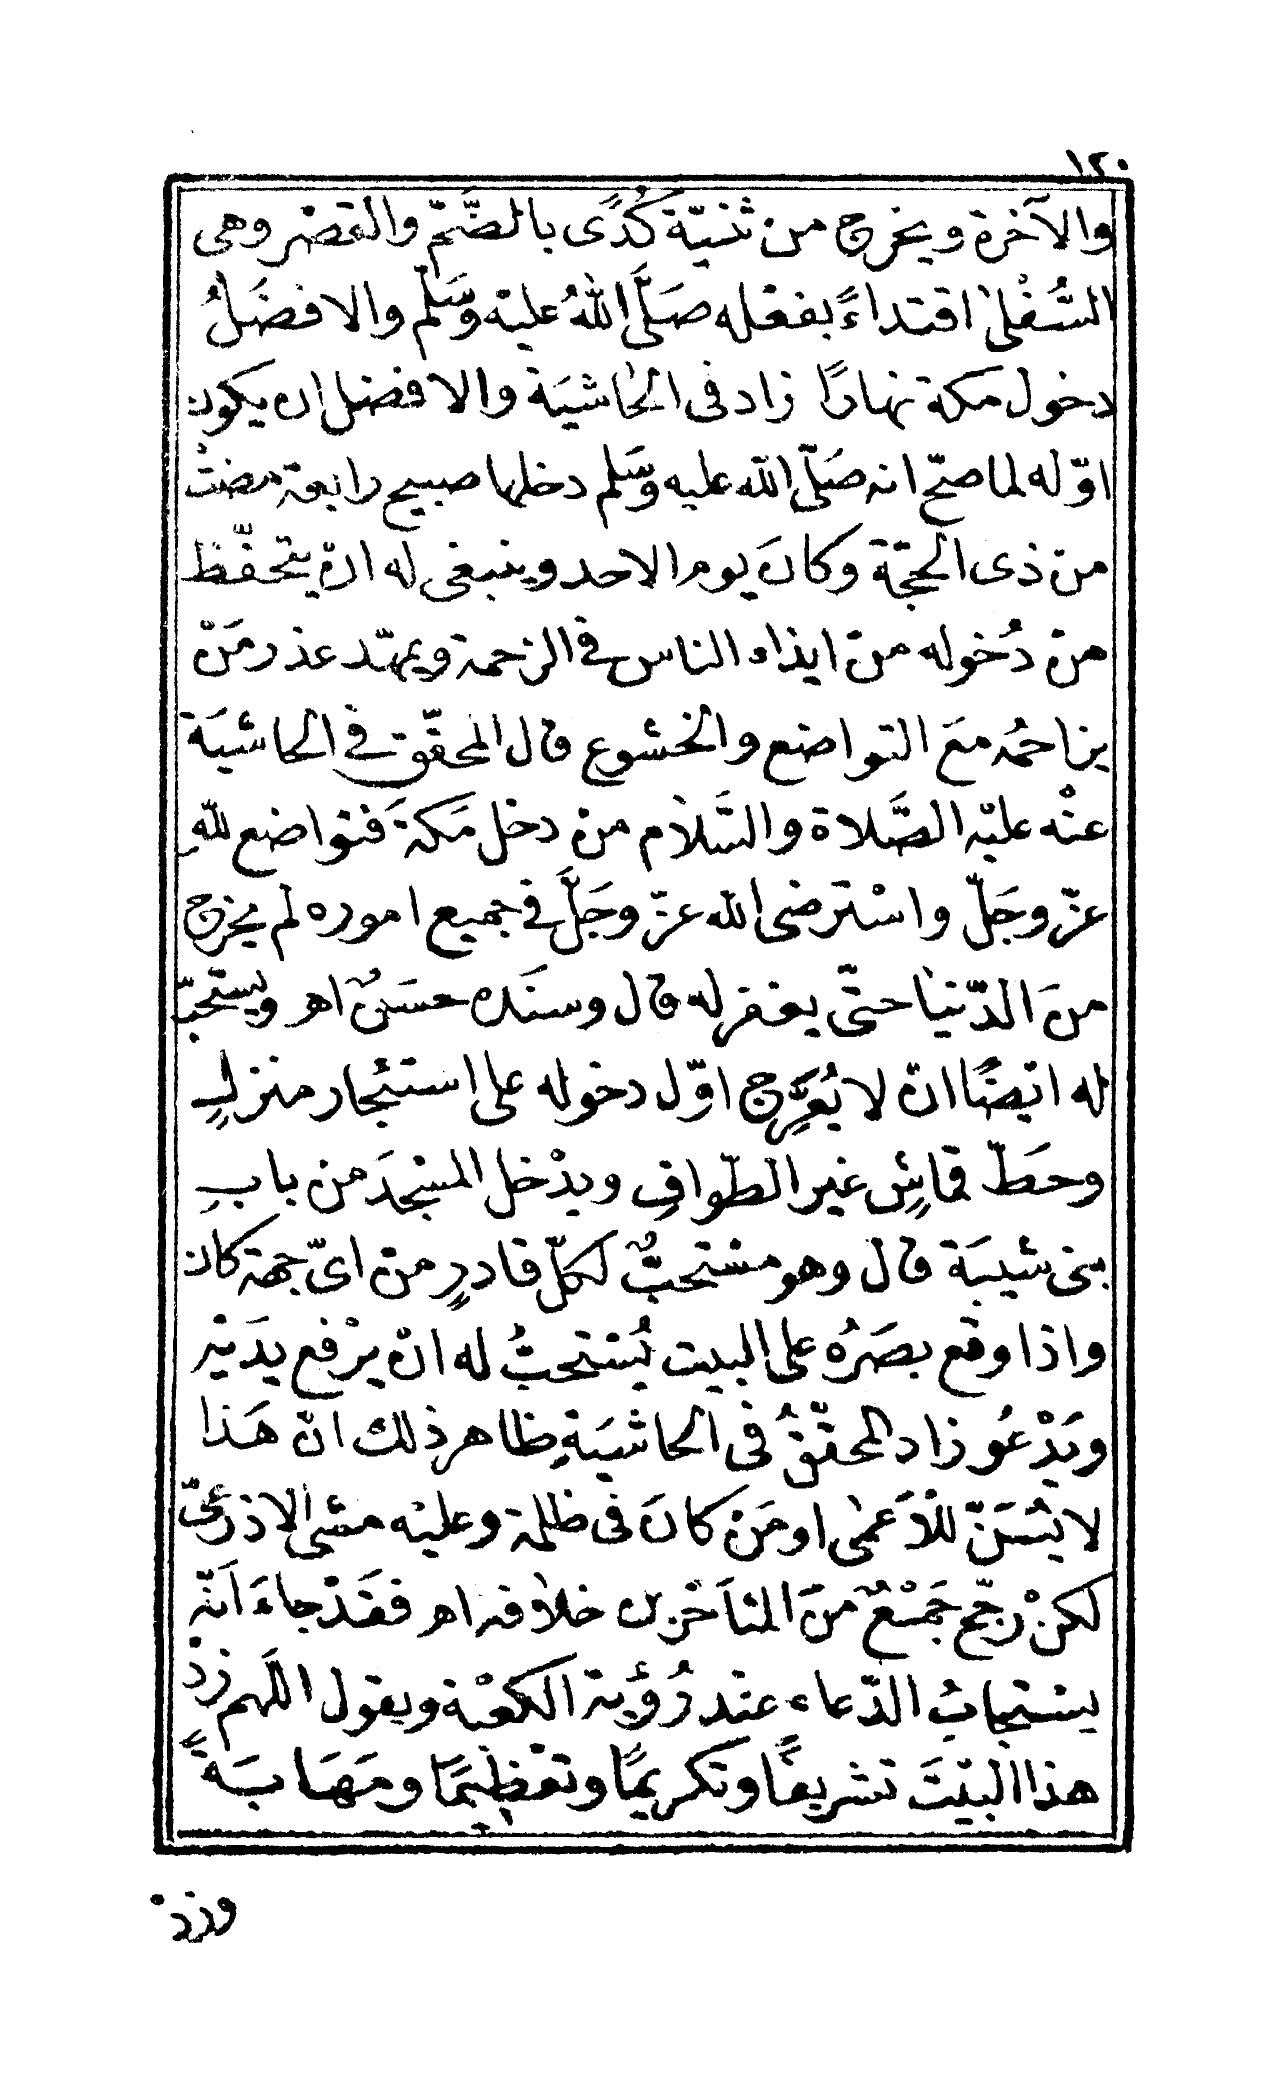 ١٢٠
والآخرة ويخرج من ثنيّة كُدًى بالضَّمّ والقصْر وهى
السُّفْلىٰ اقتداءً بفعْله صَلَّى اللهُ عليْه وَسَلَّم والافضَلُ
دخول مكة نهارًا زاد فى الحٰاشيَة والافضل ان يكون
اوّله لما صحّ انه صَلّى اللّه عليه وَسَلم دخلها صبيح رابعة مضتْ
منْ ذى الحجّة وكانَ يوم الاحد وينبغى له انْ يتحفّظ
منْ دُخوله منْ ايذاء الناس فى الزحمة ويمهّد عذر مَنْ
يزاحمُه معَ التواضع والخشوع قال المحقّق فى الحاشيَة
عنْه عليْه الصَّلاة والسَّلاٰم منْ دخل مَكة فَتواضع للّهِ
عزّ وجَلّ واسْترضى الله عزّ وجَلَّ فى جميع اموره لم يخرج
منَ الدّنيا حتّى يغفر له قال وسنَده حسَنٌ اهـ ويستحبّ
له ايْضًا انْ لا يُعَرِّج اوّل دخوله على استئجار منزلٍ
وحَطّ قماشٍ غير الطّوافِ ويدْخل المسْجدَ من بابِ
بنى شيبَة قال وهو مسْتحبٌّ لكلّ قادرٍ منْ اىّ جهة كان
واذا وقع بصَرُه على البيت يُسْتحبُّ له انْ يرْفع يدَيْه
ويَدْعُو زاد المحقّقُ فى الحاشيَةِ ظاهر ذلك انّ هَذا
لا يُسَنّ للْاَعمٰى او مَنْ كانَ فى ظلمة وعليْه مشى الاذرَعىّ
لكنْ رجّح جَمْعٌ منَ المتأخّرين خلاٰفه اهـ فقَدْ جاءَ اَنّه
يسْتجابُ الدّعاء عنْد رُؤْية الكعْبة ويقول اللّهم زدْ
هذا البيْتَ تشريفًا وتكريمًا وتعْظيمًا ومَهَابَةً
وزدْ